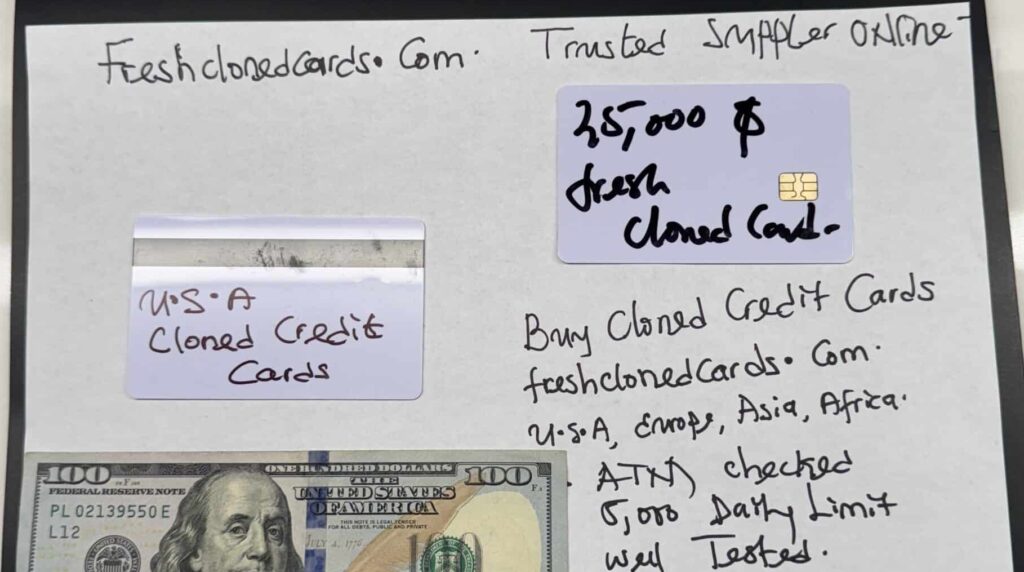 Freshclonedcards.Com.
Trusted Suppler Online
25,000 $
fresh
cloned Card.
U.S.A
Cloned Credit
Cards
Buy Cloned Credit Cards
freshclonedCards.Com.
U.S.A, Europe, Asia, Africa.
ATM checked
5,000 Daily Limit
well Tested.
100
ONE HUNDRED DOLLARS
100
FEDERAL RESERVE NOTE
THE
UNITED STATES
OF AMERICA
PL 02139550 E
L12
THIS NOTE IS LEGAL TENDER
FOR ALL DEBTS, PUBLIC AND PRIVATE
JULY 4, 1776
100